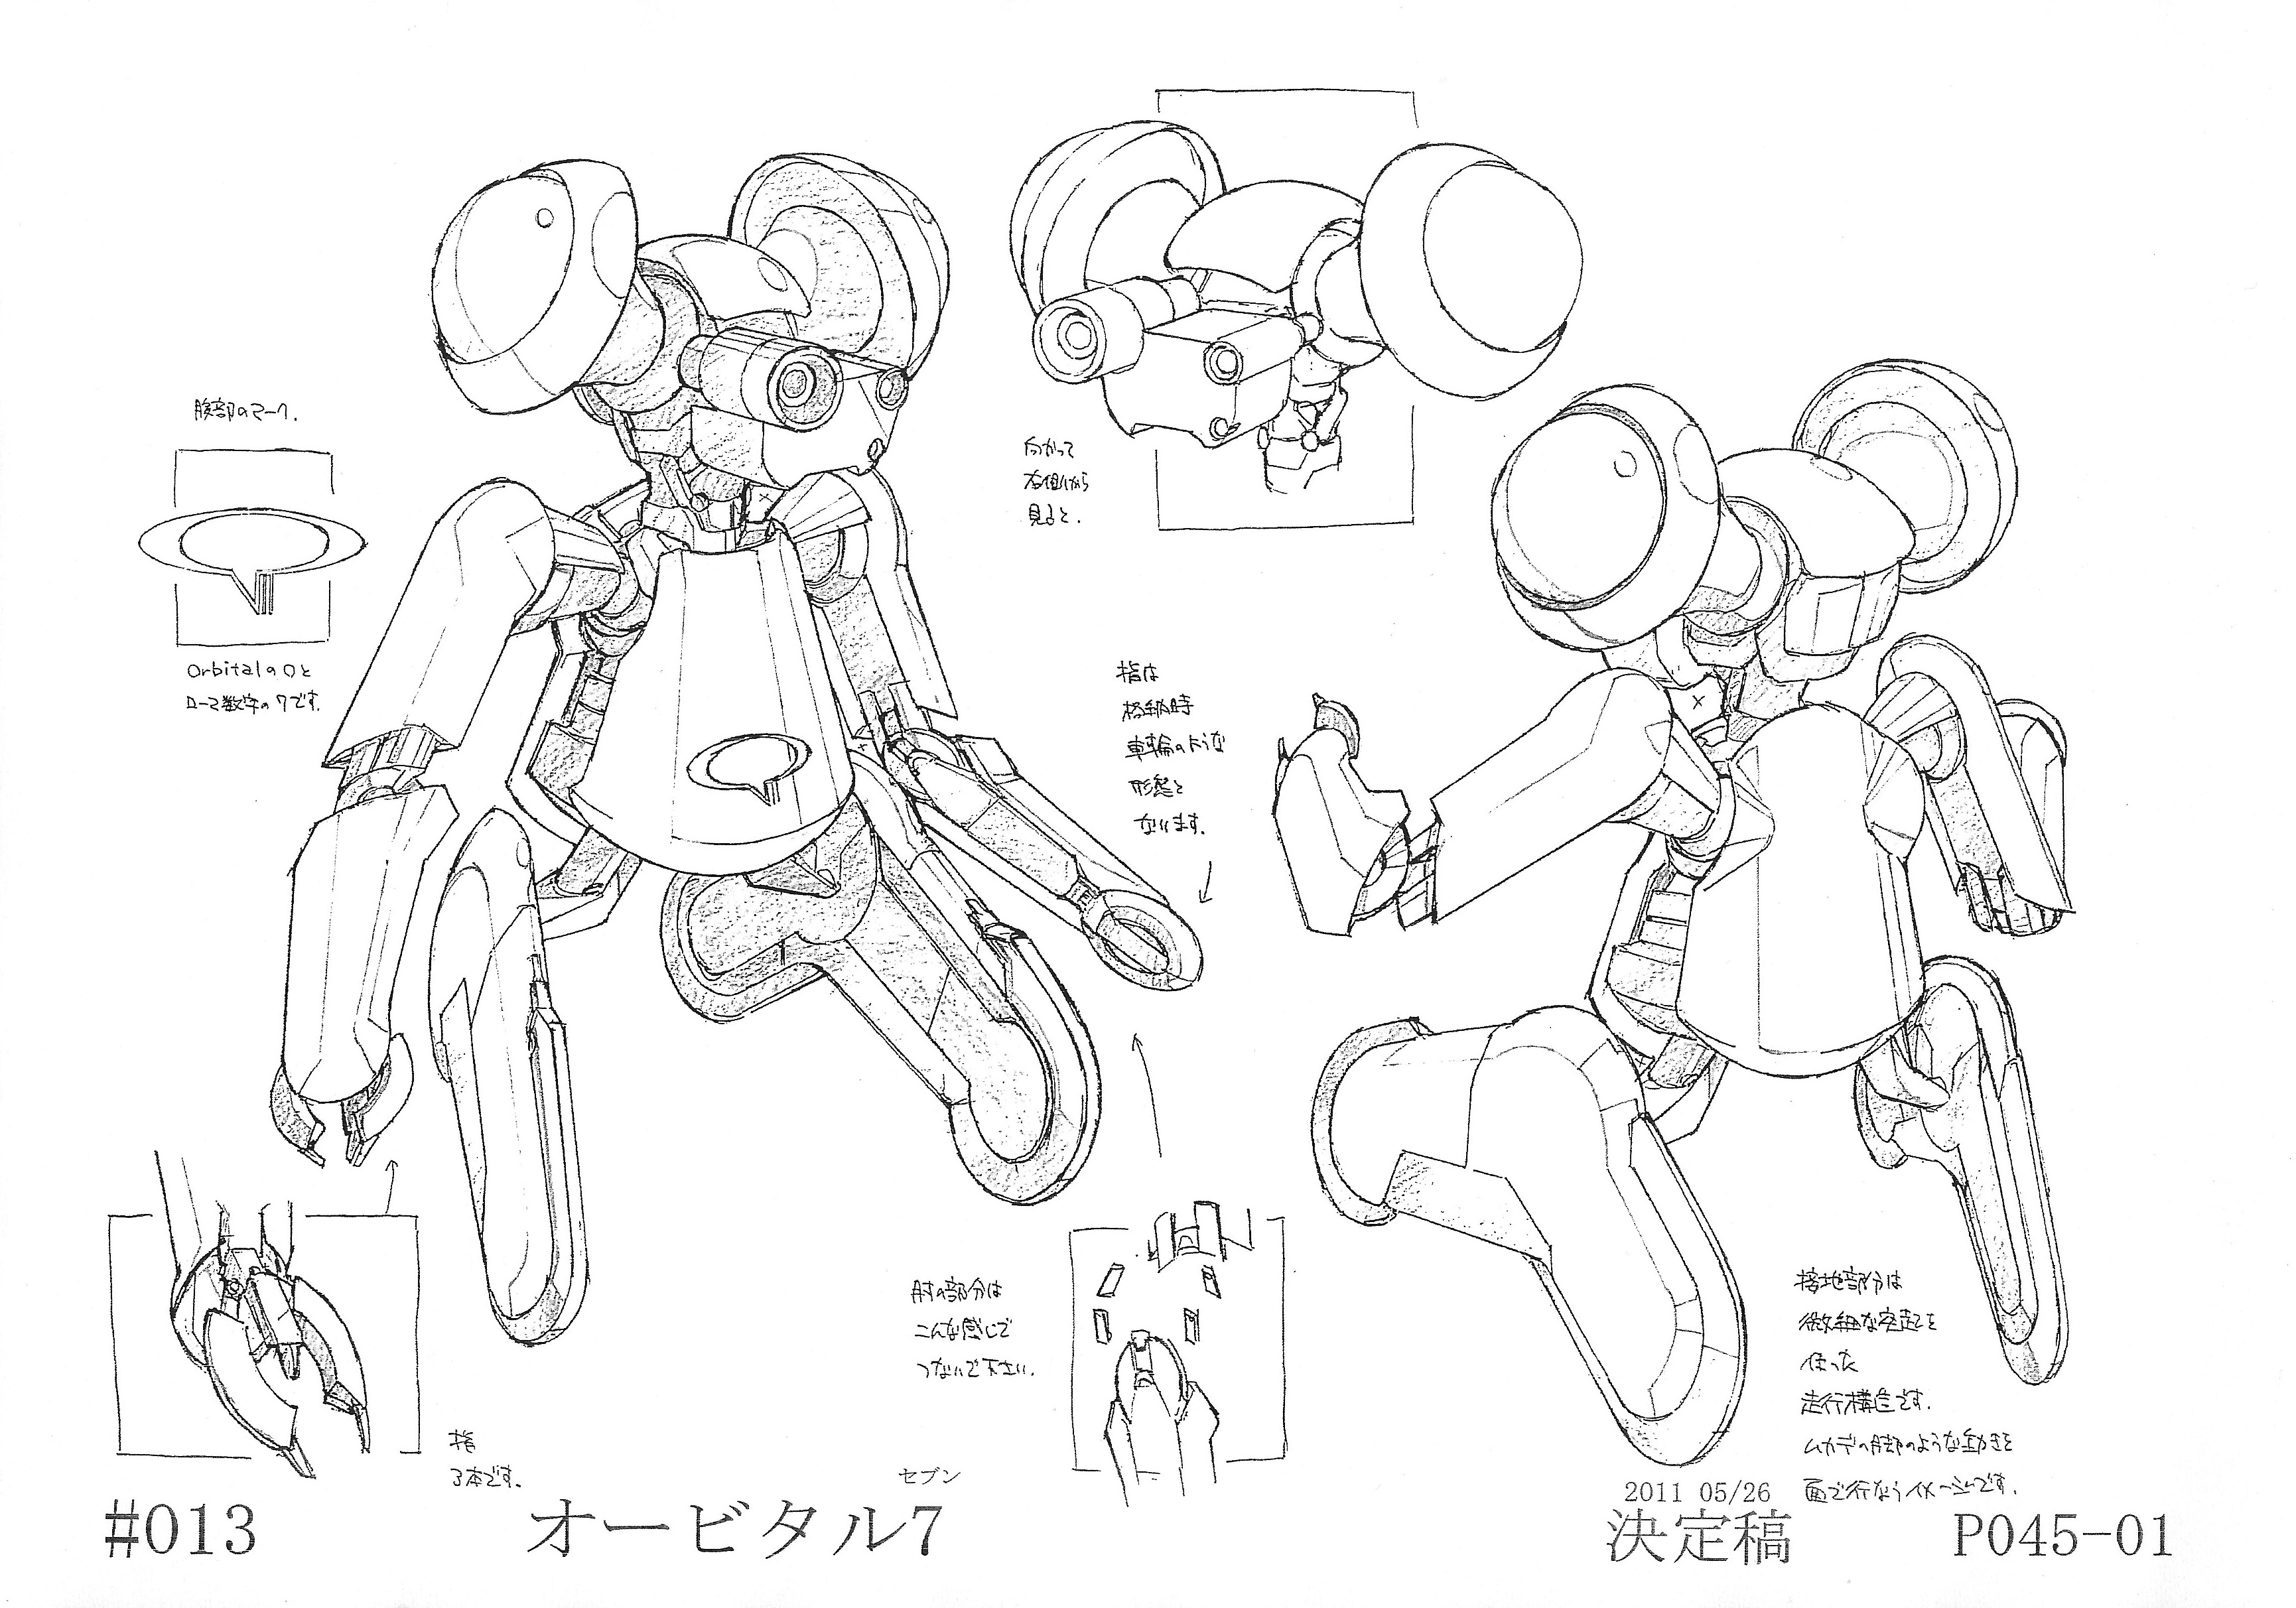 腹部のマーク.
OrbitalのOと
ローマ数字の7です.
向かって
右側から
見ると.
指は
格納時
車輪のような
形態と
なります.
肘の部分は
こんな感じで
つないで下さい.
指
3本です.
接地部分は
微細な突起を
使った
走行構造です.
ムカデの脚部のような動きを
面で行なうイメージです.
セブン
#013
オービタル7
2011 05/26
決定稿
P045-01